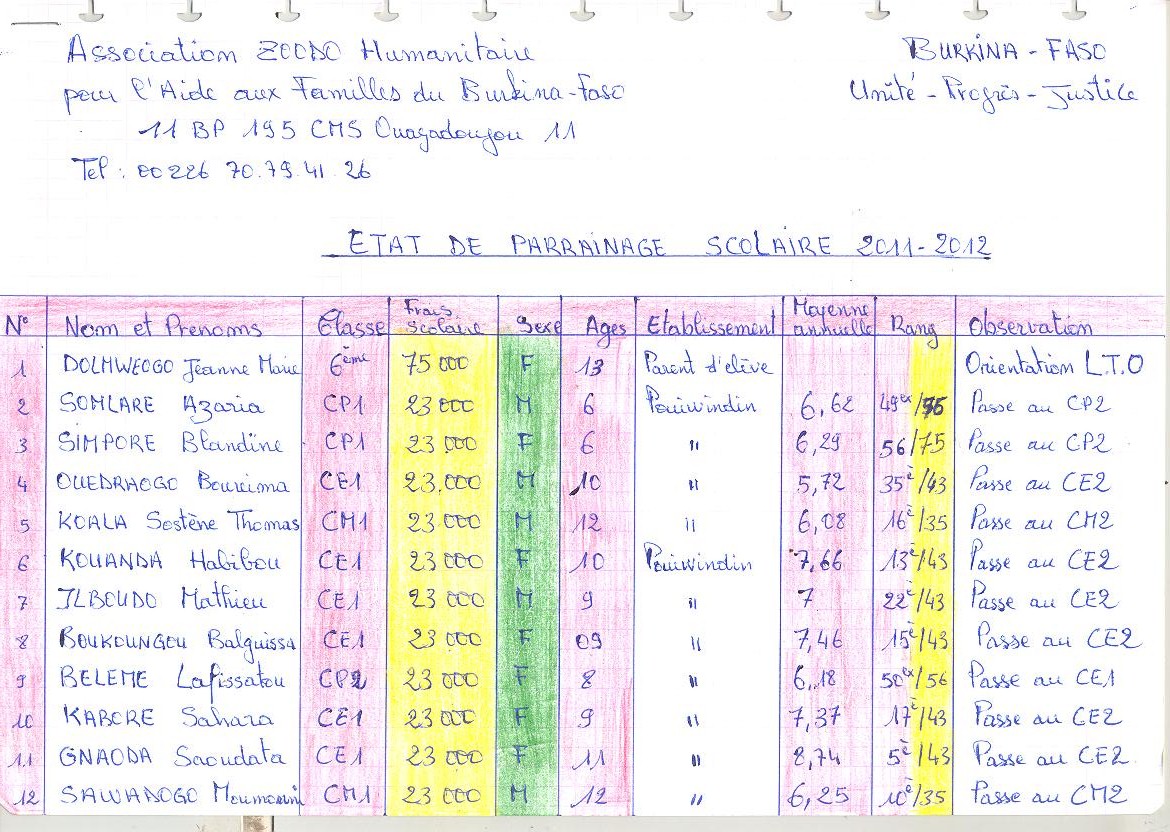 Association ZOODO Humanitaire
pour l'Aide aux Familles du Burkina-Faso
11 BP 195 CMS Ouagadougou 11
Tel : 00226 70.79.41.26
BURKINA - FASO
Unité - Progrès - Justice
ETAT DE PARRAINAGE SCOLAIRE 2011-2012
N° Nom et Prenoms Classe Frais Scolaire Sexe Ages Etablissement Moyenne annuelle Rang Observation
1 DOLMWEOGO Jeanne Marie 6ème 75 000 F 13 Parent d'elève Orientation L.T.O
2 SOMLARE Azaria CP1 23 000 M 6 Pouiwindin 6,62 49ex/75 Passe au CP2
3 SIMPORE Blandine CP1 23 000 F 6 " 6,29 56/75 Passe au CP2
4 OUEDRAOGO Boureima CE1 23.000 M 10 " 5,72 35è/43 Passe au CE2
5 KOALA Sostène Thomas CM1 23 000 M 12 " 6,08 16è/35 Passe au CM2
6 KOUANDA Habibou CE1 23 000 F 10 Pouiwindin 7,66 13è/43 Passe au CE2
7 ILBOUDO Mathieu CE1 23 000 M 9 " 7 22è/43 Passe au CE2
8 BOUKOUNGOU Balguissa CE1 23 000 F 09 " 7,46 15è/43 Passe au CE2
9 BELEME Lafissatou CP2 23 000 F 8 " 6,18 50ex/56 Passe au CE1
10 KABORE Sahara CE1 23 000 F 9 " 7,37 17è/43 Passe au CE2
11 GNAODA Saoudata CE1 23 000 F 11 " 8,74 5è/43 Passe au CE2
12 SAWADOGO Moumouni CM1 23 000 M 12 " 6,25 10è/35 Passe au CM2